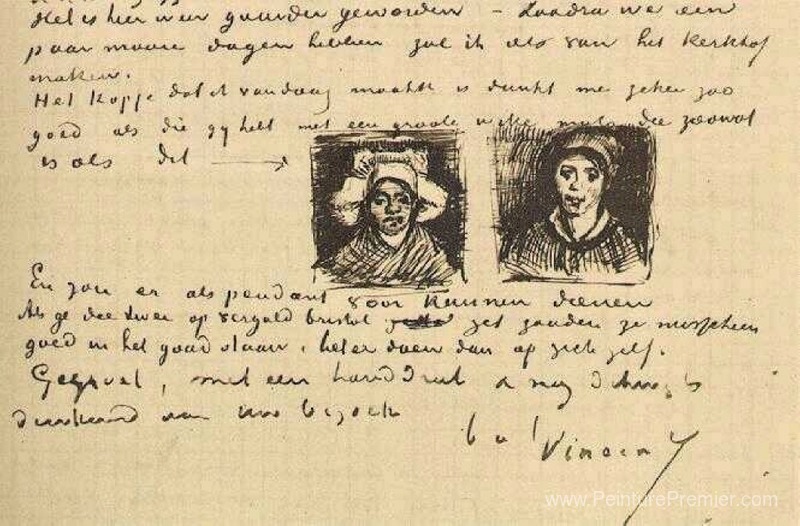 Het is hier weer geworden – Zoodra we een
paar mooie dagen hebben zal ik iets van het kerkhof
maken.
Het kopje dat ik vandaag maakte is dunkt me zeker zoo
goed als die gy hebt met een groote witte muts die zoowat
is als dit
En zou er als pendant voor kunnen dienen
Als ge die twee op verguld bristol zet zouden ze misschien
goed in het goud staan, beter doen dan op zich zelf.
Gegroet, met een handdruk
dankend van uw bezoek
Vincent
www.PeinturePremier.com